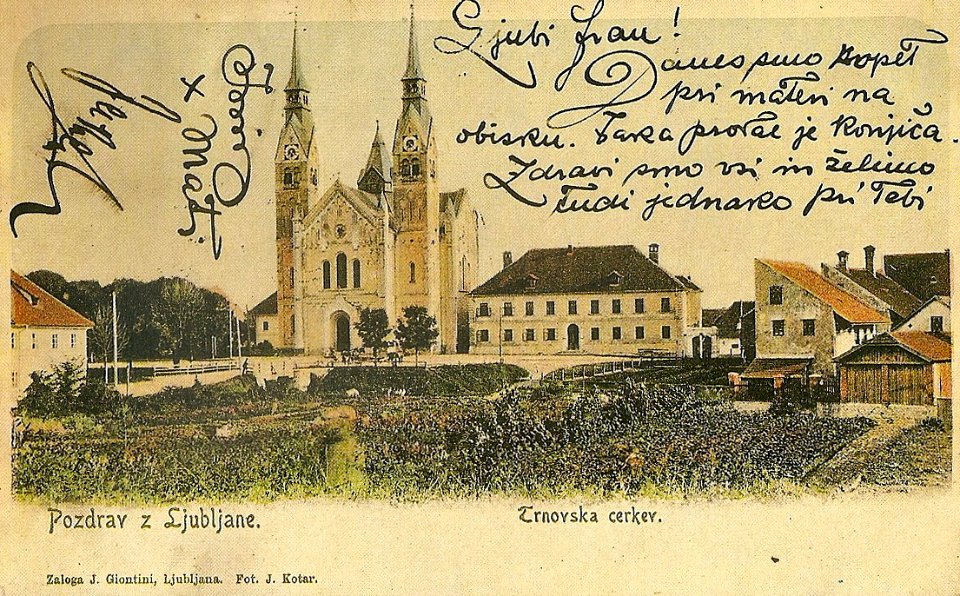 Ljubi Fran!
Danes smo zopet
pri materi na
obisku.
je Konjiča.
Zdravi smo vsi in želimo
tudi jednako pri Tebi
Tvoja
x Mati
Pozdrav z Ljubljane.
Trnovska cerkev.
Zaloga J. Giontini, Ljubljana. Fot. J. Kotar.